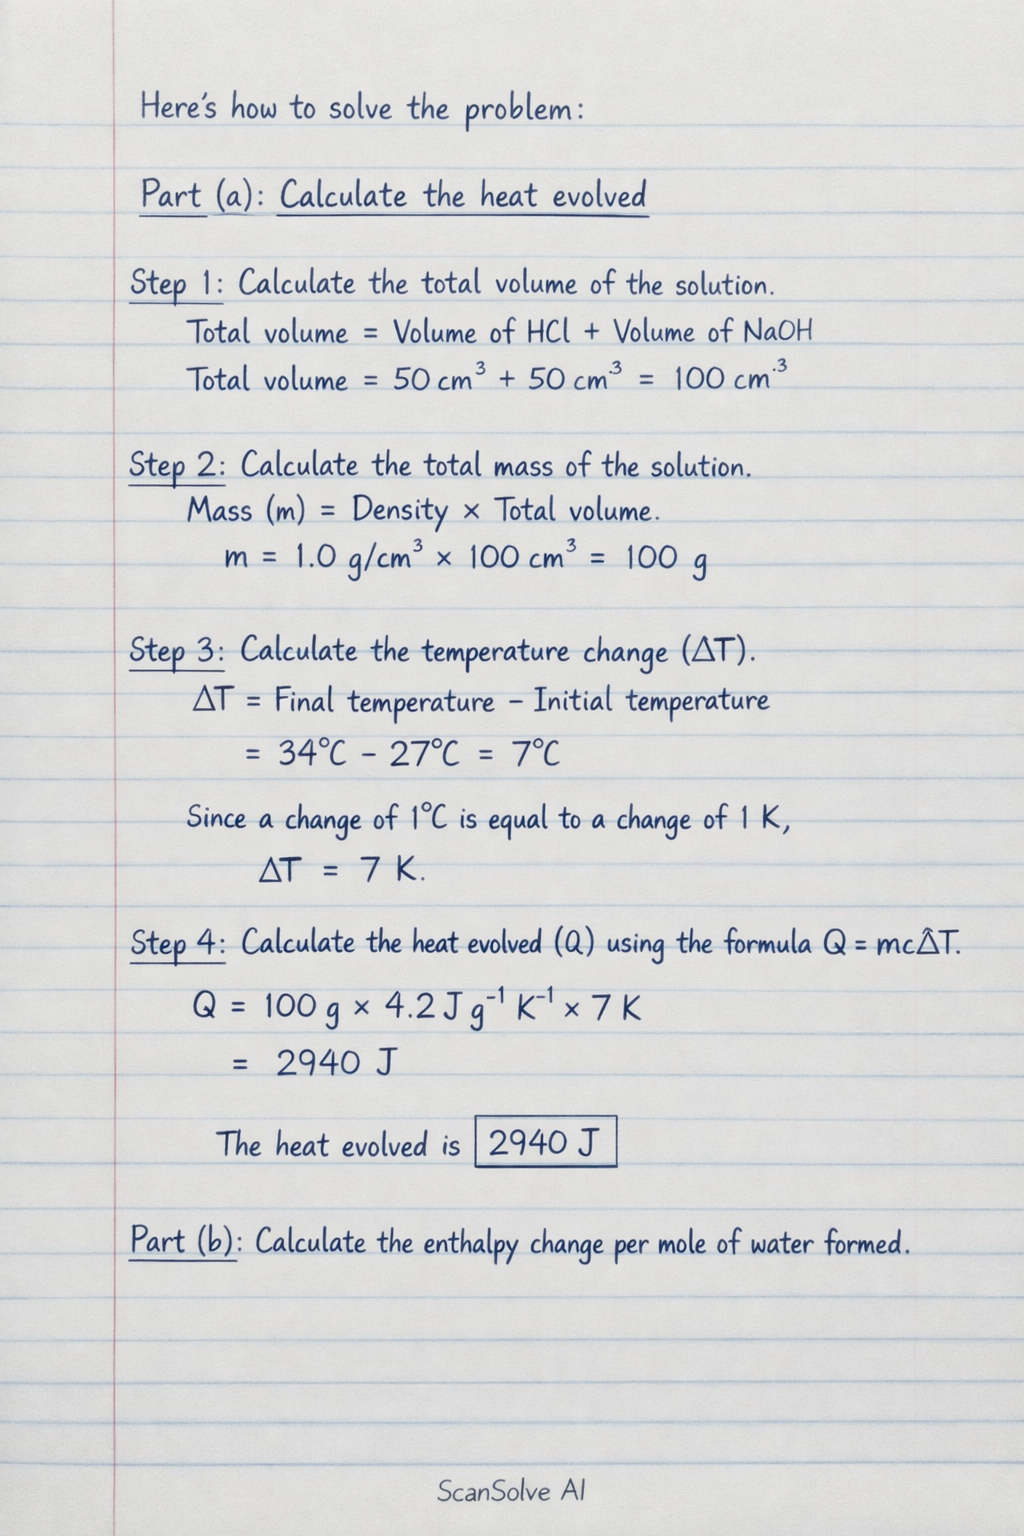 Here's how to solve the problem:
Part (a): Calculate the heat evolved
Step 1: Calculate the total volume of the solution.
Total volume = Volume of HCl + Volume of NaOH
Total volume = 50 cm³ + 50 cm³ = 100 cm³
Step 2: Calculate the total mass of the solution.
Mass (m) = Density × Total volume.
m = 1.0 g/cm³ × 100 cm³ = 100 g
Step 3: Calculate the temperature change (ΔT).
ΔT = Final temperature – Initial temperature
= 34°C – 27°C = 7°C
Since a change of 1°C is equal to a change of 1 K,
ΔT = 7 K.
Step 4: Calculate the heat evolved (Q) using the formula Q = mcΔ̂T.
Q = 100 g × 4.2 J g⁻¹ K⁻¹ × 7 K
= 2940 J
The heat evolved is 2940 J
Part (b): Calculate the enthalpy change per mole of water formed.
ScanSolve AI